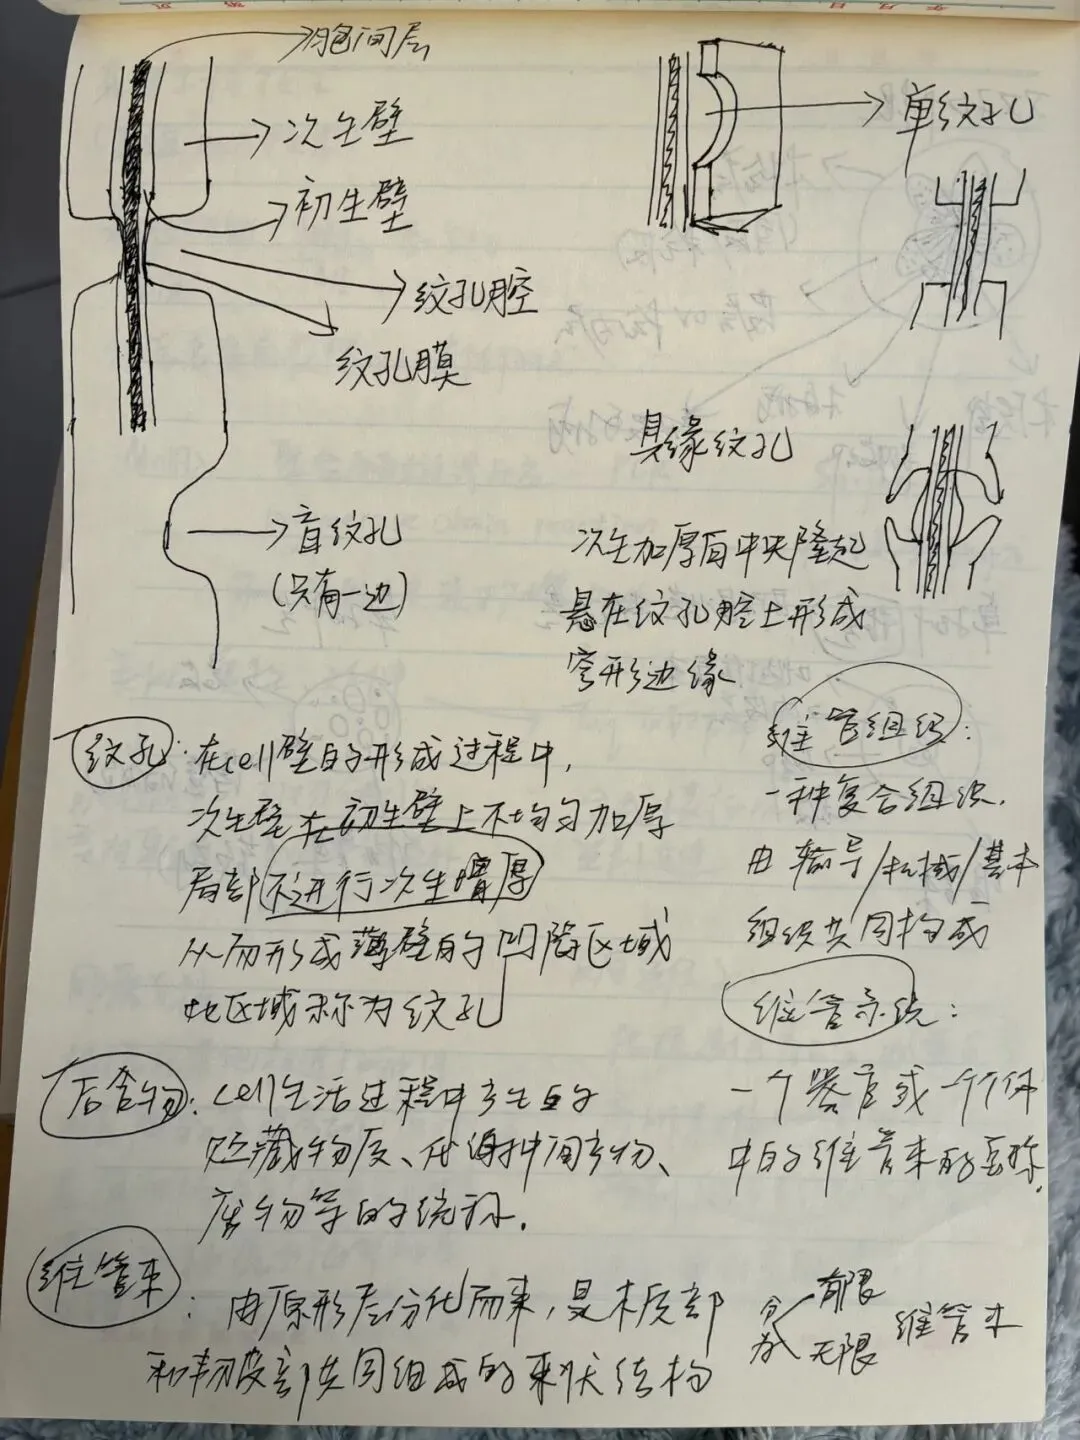 胞间层
次生壁
初生壁
纹孔腔
纹孔膜
盲纹孔
(只有一边)
单纹孔
具缘纹孔
次生加厚自中央隆起
悬在纹孔腔上形成
穹形边缘
纹孔：在cell壁的形成过程中，
次生壁在初生壁上不均匀加厚
局部不进行次生增厚
从而形成薄壁的凹陷区域
此区域称为纹孔
后含物：cell生活过程中产生的
贮藏物质、代谢中间产物、
废物等的统称.
维管束：由原形层分化而来，是木质部
和韧皮部共同组成的束状结构
分为 有限 无限 维管束
维管组织：
一种复合组织.
由输导/机械/基本
组织共同构成
维管系统：
一个器官或一个个体
中的维管束的总称.